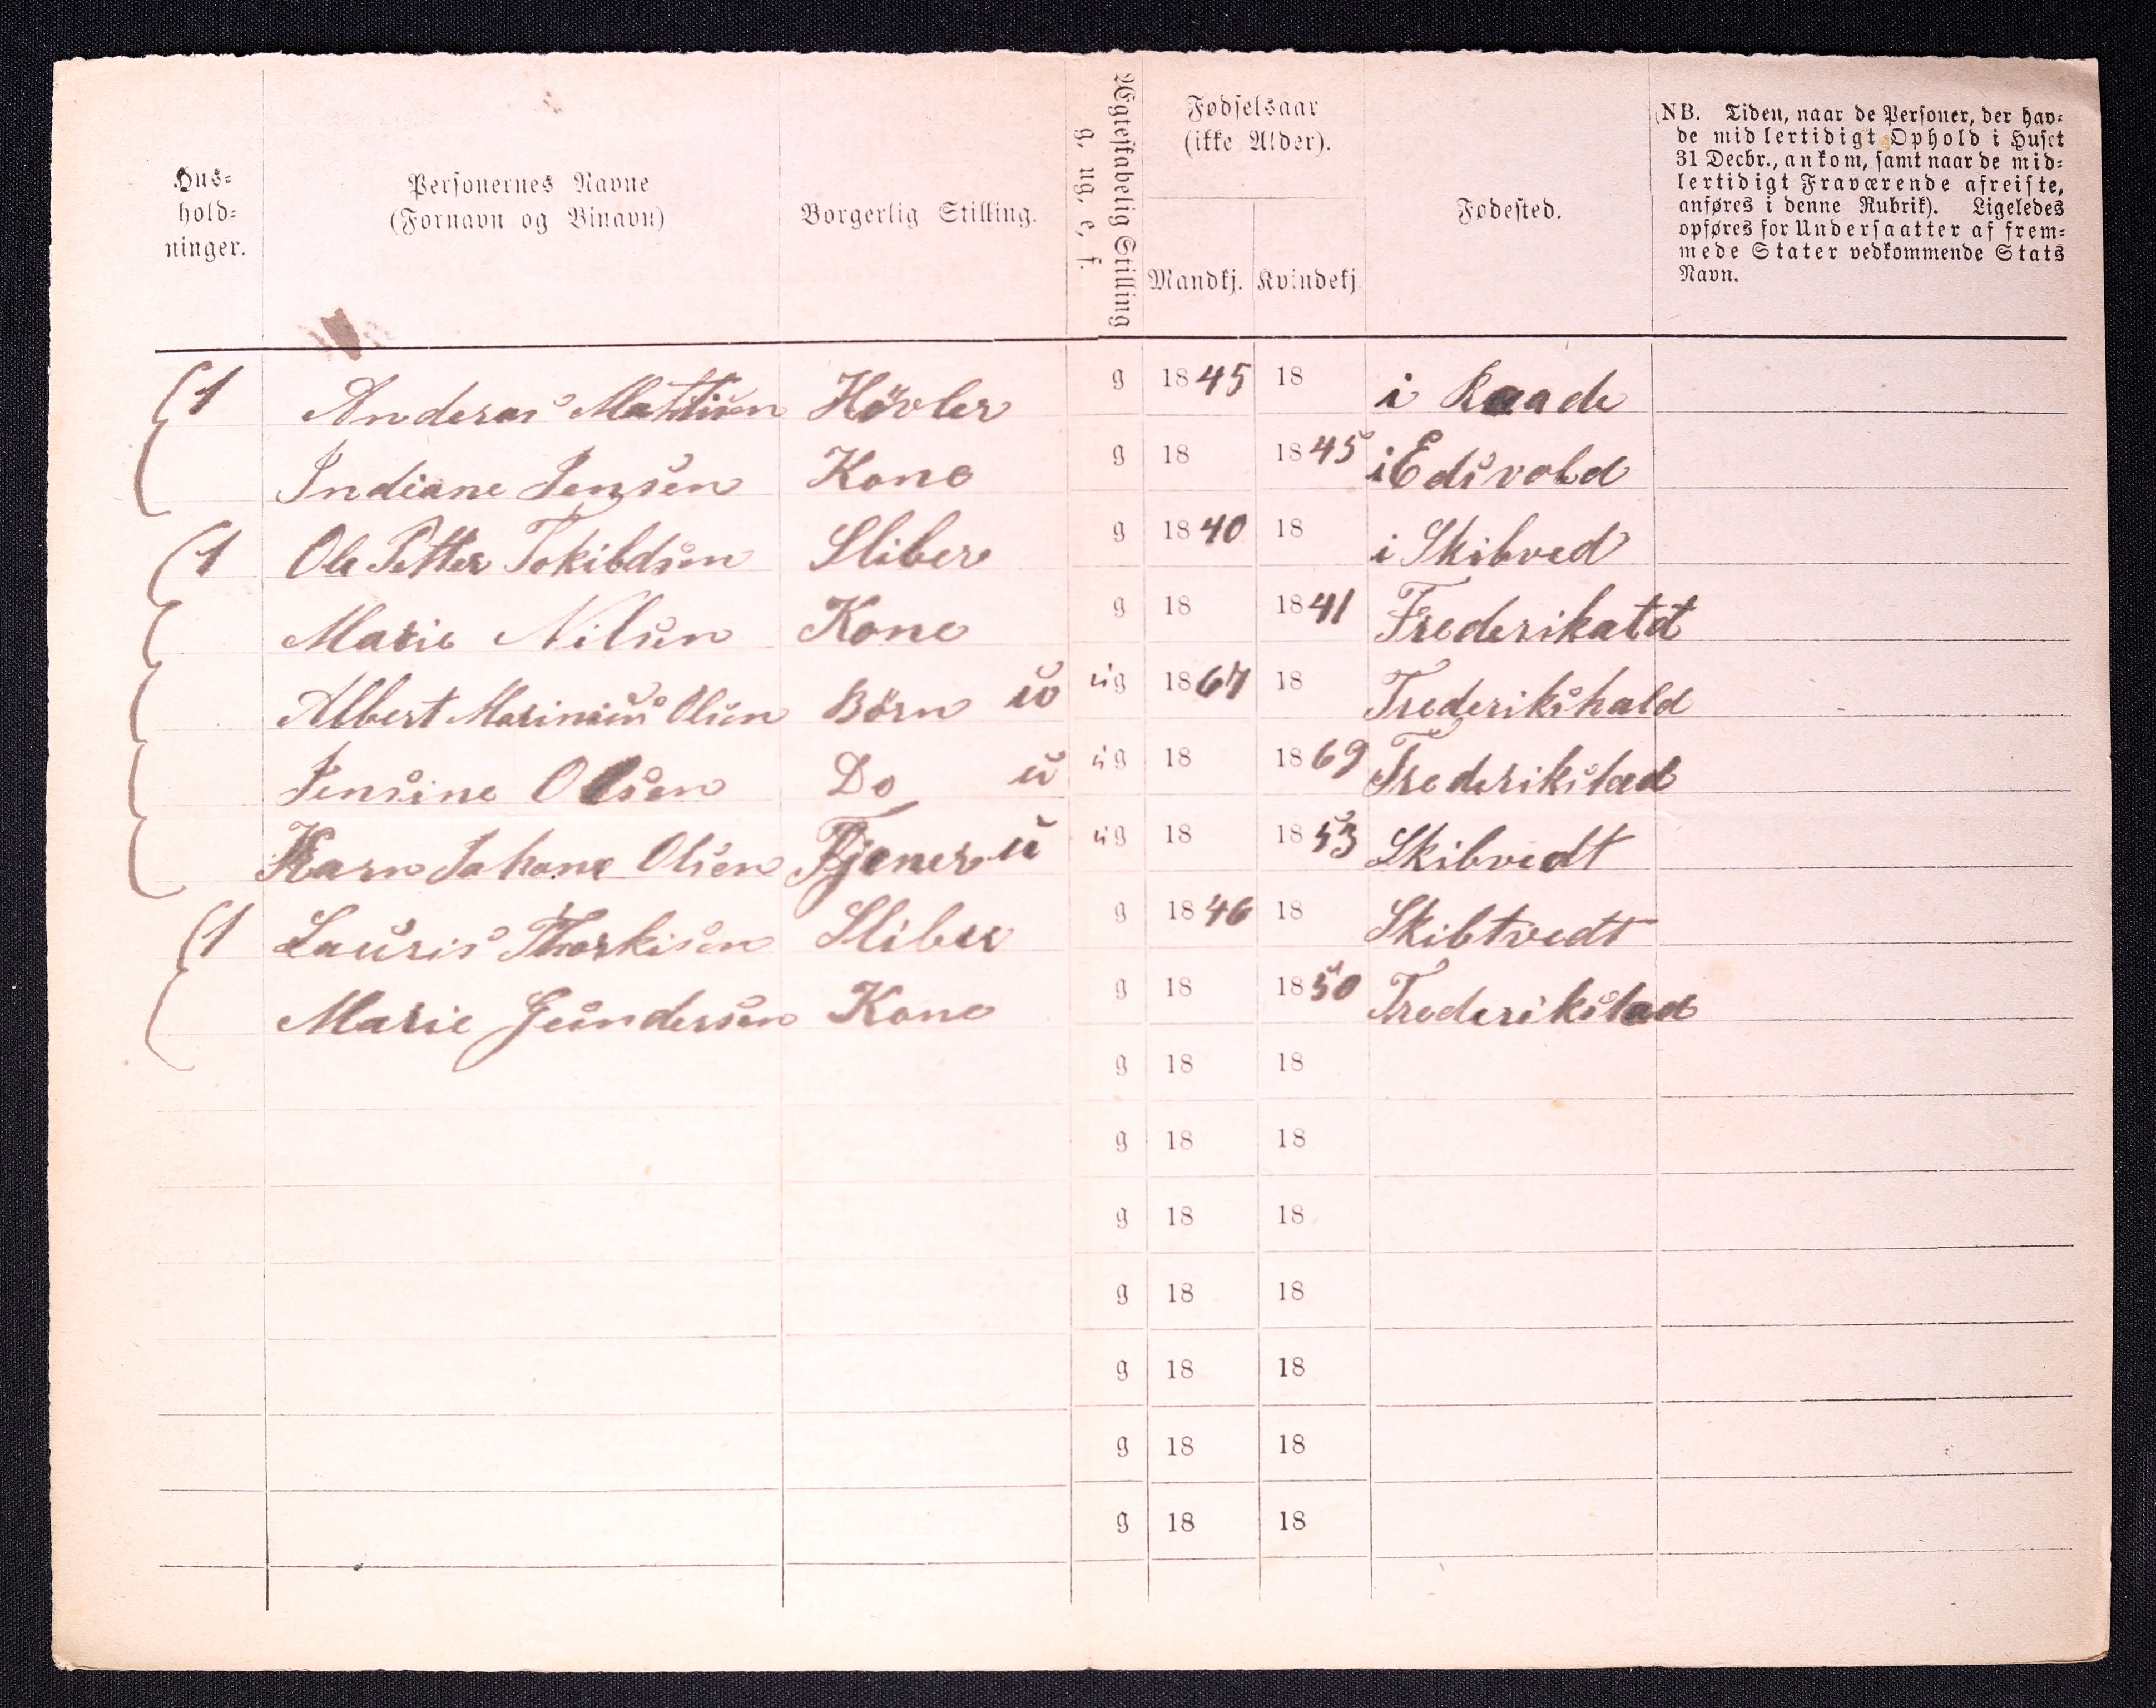 Hus-
hold-
ninger.
Personernes Navne
(Fornavn og Binavn)
Borgerlig Stilling.
Ægteskabelig Stilling
g, ug, e, f.
Fødselsaar
(ikke Alder).
Mandkj. Kvindekj
Fødested.
NB. Tiden, naar de Personer, der hav-
de midlertidigt Ophold i Huset
31 Decbr., ankom, samt naar de mid-
lertidigt Fraværende afreiste,
anføres i denne Rubrik). Ligeledes
opføres for Undersaatter af frem-
mede Stater vedkommende Stats
Navn.
1 Anderas Mattisen Hövler g 1845 18 i Raade
Indiane Jensen Kone g 18 1845 i Edsvold
1 Ole Petter Tokildsen Sliber g 1840 18 i Skibved
Marie Nilsen Kone g 18 1841 Frederikatd
Albert Marinius Olsen Börn u ug 1867 18 Frederikshald
Jensine Olsen Do u ug 18 1869 Frederikstad
Karn Johane Olsen Tjener u ug 18 1853 Skibvedt
1 Lauris Thorkisen Sliber g 1846 18 Skibtvedt
Marie Gundersen Kone g 18 1850 Frederikstad
g 18 18
g 18 18
g 18 18
g 18 18
g 18 18
g 18 18
g 18 18